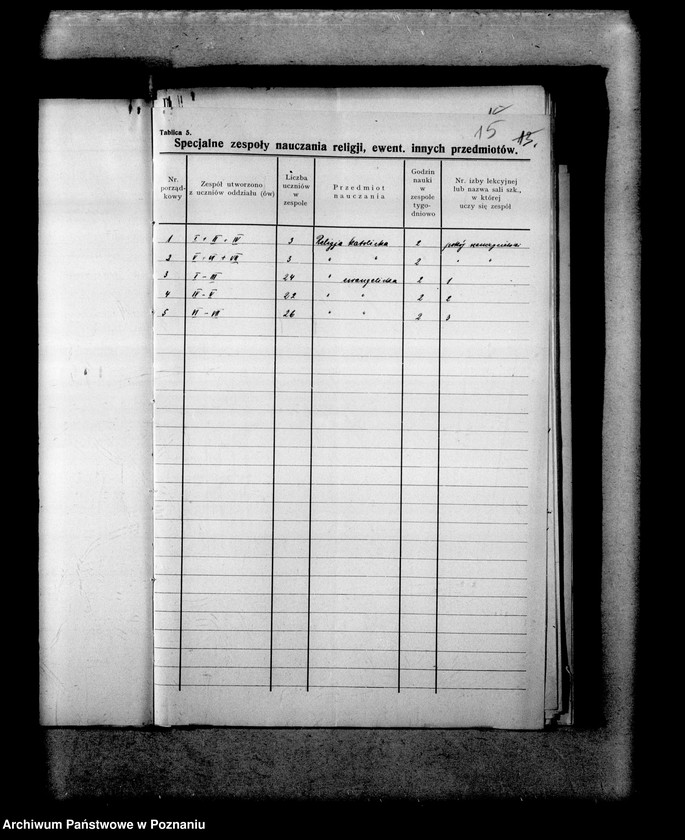 15 13.
Tablica 5.
Specjalne zespoły nauczania religji, ewent. innych przedmiotów.
Nr. porząd- kowy
Zespół utworzono z uczniów oddziału (ów)
Liczba uczniów w zespole
Przedmiot nauczania
Godzin nauki w zespole tygo- dniowo
Nr. izby lekcyjnej lub nazwa sali szk., w której uczy się zespół
1 I + II + IV 3 Religja katolicka 2 pokój
2 V + VI + VII 3 " " 2 " "
3 I - III 24 " ewangelicka 2 1
4 IV - V 22 " " 2 2
5 VI - VII 26 " " 2 3
Archiwum Państwowe w Poznaniu